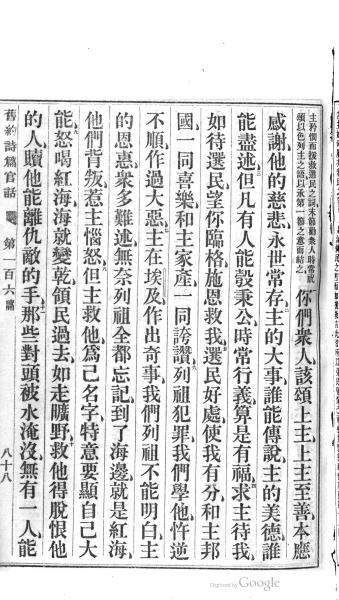 主矜憫而援救選民之詞末節勸衆人時常成
頌以色列主之語以承第一節之意而結之
你們衆人該頌上主上主至善本應
感謝他的慈悲永世常存主的大事誰能傳說主的美德誰
能盡述但凡有人能彀秉公時常行義算是有福求主待我
如待選民望你臨格施恩救我選民好處使我有分和主邦
國一同喜樂和主家產一同誇讚列祖犯罪我們學他忤逆
不順作過大惡主在埃及作出奇事我們列祖不能明白主
的恩惠衆多難述無奈列祖全都忘記到了海邊就是紅海
他們背叛惹主惱怒但主救他爲己名字特意要顯自己大
能怒喝紅海海就變乾領民過去如走曠野救他得脫恨他
的人贖他能離仇敵的手那些對頭被水淹沒無有一人能
舊約詩篇官話 第一百六篇 八十八
Digitized by Google